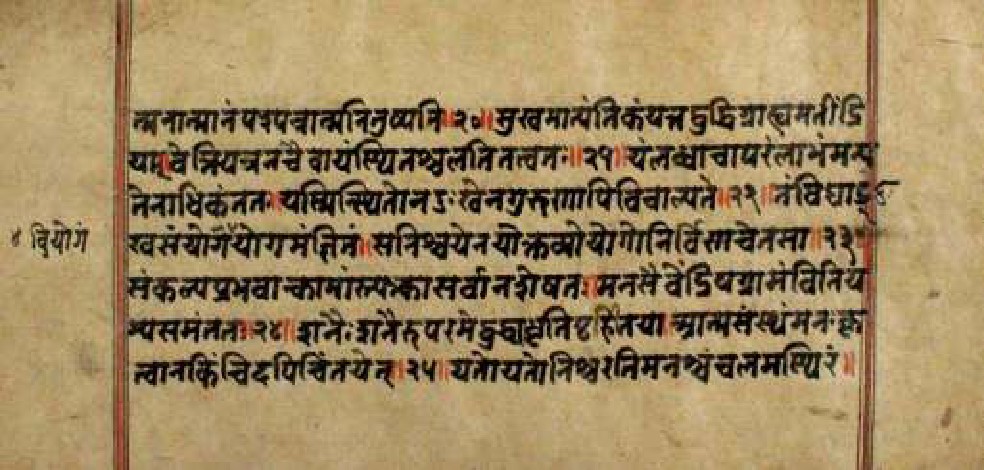 त्मनात्मानंपश्यचात्मनितुष्यति॥२०॥सुखमात्यंतिकंयत्तद्बुद्धिग्राह्यमतींद्रि
यम्॥वेत्तियत्रनचैवायंस्थितश्चलतितत्वतः॥२१॥यंलब्ध्वाचापरंलाभंमन्य
तेनाधिकंततः॥यस्मिन्स्थितोनदुःखेनगुरुणापिविचाल्यते॥२२॥तंविद्याद्दुः
४ वियोगं
खसंयोगंयोगसंज्ञितं॥सनिश्चयेनयोक्तव्योयोगोनिर्विण्णचेतसा॥२३॥
संकल्पप्रभवान्कामांस्त्यक्त्कासर्वानशेषतः॥मनसैवेंद्रियग्रामंविनिय
म्यसमंततः॥२४॥शनैःशनैरुपरमेद्बुद्ध्याधृतिगृहीतया॥आत्मसंस्थंमनःकृ
त्वानकिंचिदपिचिंतयेत्॥२५॥यतोयतोनिश्चरतिमनश्चंचलमस्थिरं॥